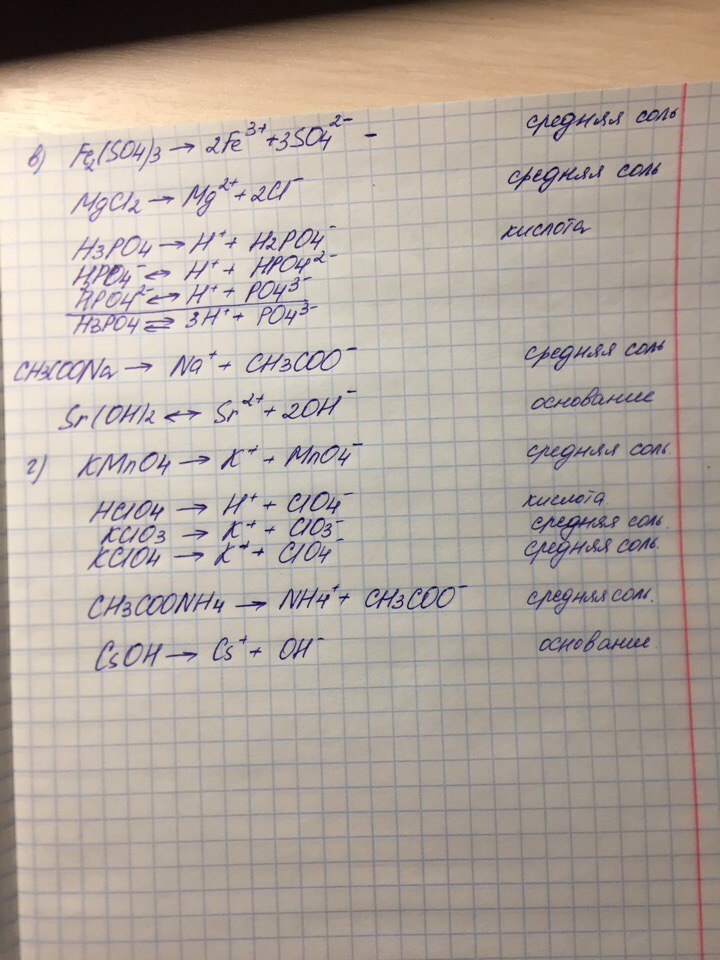 в) Fe₂(SO4)3 → 2Fe³⁺ + 3SO4²⁻ – средняя соль
MgCl2 → Mg²⁺ + 2Cl⁻ средняя соль
H3PO4 → H⁺ + H2PO4⁻ кислота
H₂PO4⁻ ↔ H⁺ + HPO4²⁻
HPO4²⁻ ↔ H⁺ + PO4³⁻
H3PO4 ⇌ 3H⁺ + PO4³⁻
CH3COONa → Na⁺ + CH3COO⁻ средняя соль
Sr(OH)2 ↔ Sr²⁺ + 2OH⁻ основание
г) KMnO4 → K⁺ + MnO4⁻ средняя соль.
HClO4 → H⁺ + ClO4⁻ кислота
KClO3 → K⁺ + ClO3⁻ средняя соль
KClO4 → K⁺ + ClO4⁻ средняя соль.
CH3COONH4 → NH4⁺ + CH3COO⁻ средняя соль.
CsOH → Cs⁺ + OH⁻ основание.